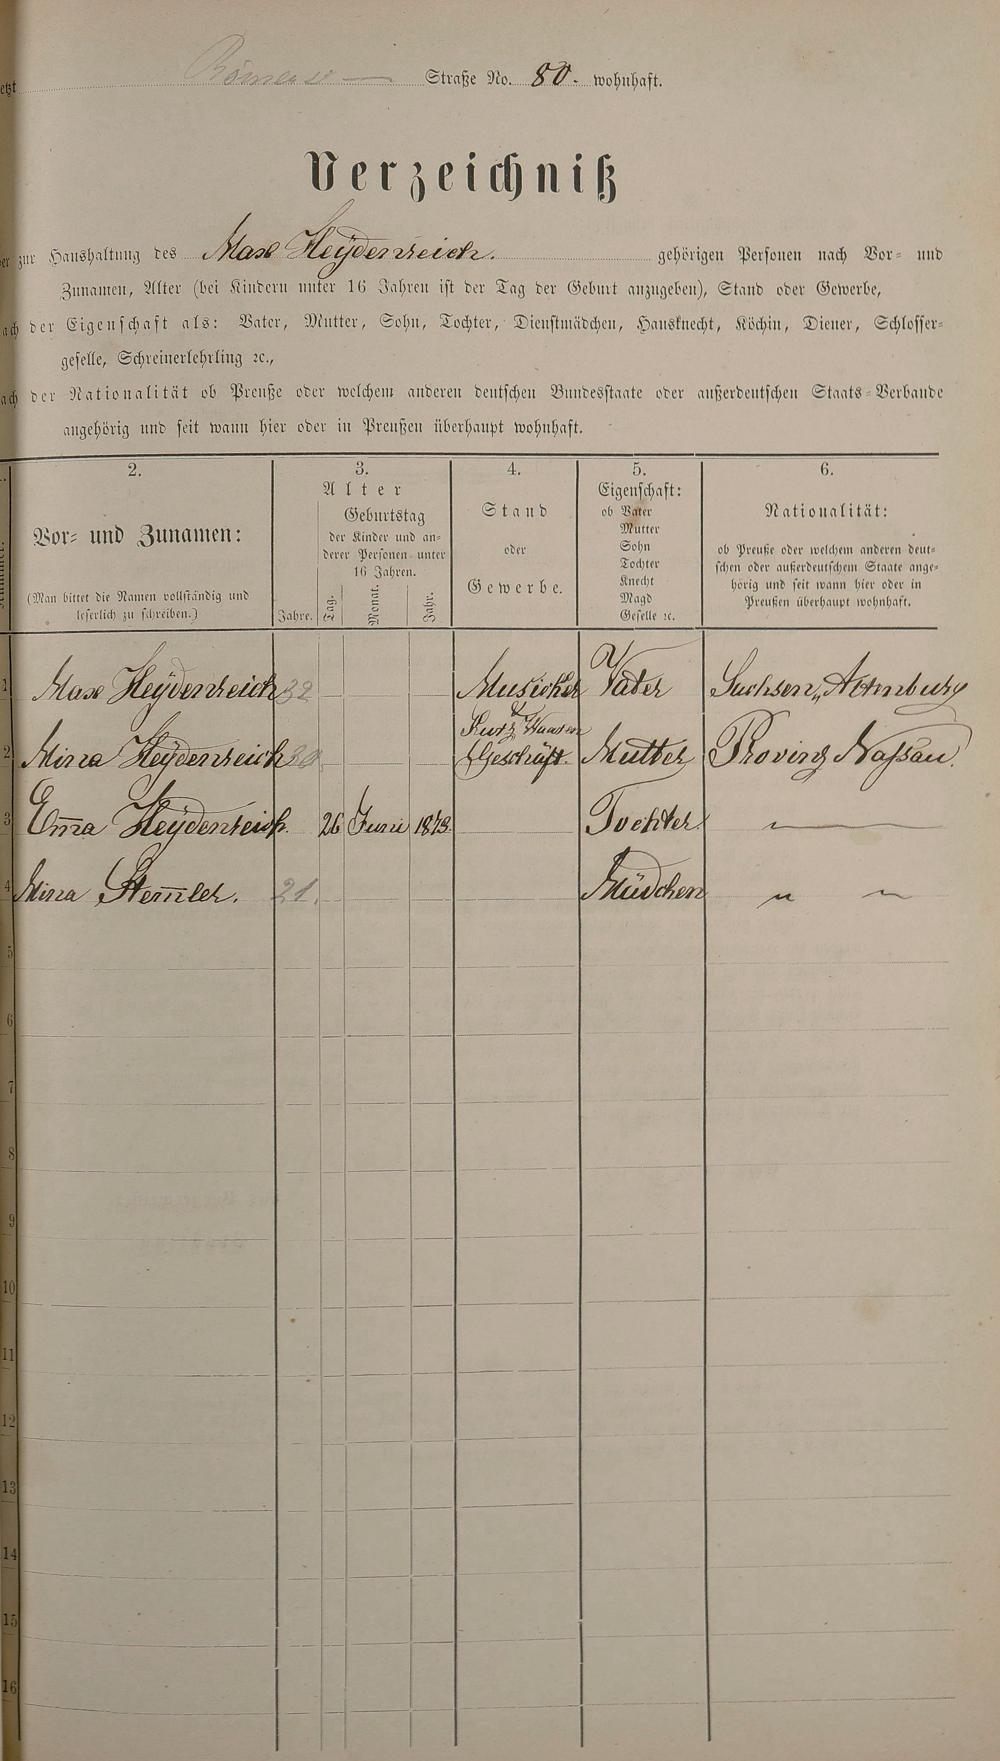 etzt Römerst — Straße No. 80. wohnhaft.
Verzeichniß
der zur Haushaltung des Max Heÿdenreich. gehörigen Personen nach Vor- und
Zunamen, Alter (bei Kindern unter 16 Jahren ist der Tag der Geburt anzugeben), Stand oder Gewerbe,
nach der Eigenschaft als: Vater, Mutter, Sohn, Tochter, Dienstmädchen, Hausknecht, Köchin, Diener, Schlosser-
geselle, Schreinerlehrling ꝛc.,
nach der Nationalität ob Preuße oder welchem anderen deutschen Bundesstaate oder außerdeutschen Staats-Verbande
angehörig und seit wann hier oder in Preußen überhaupt wohnhaft.
2. 3. 4. 5. 6.
Vor- und Zunamen:
(Man bittet die Namen vollständig und
leserlich zu schreiben.)
Alter
Jahre.
Geburtstag
der Kinder und an-
derer Personen unter
16 Jahren.
Tag. Monat. Jahr.
Stand
oder
Gewerbe.
Eigenschaft:
ob Vater
Mutter
Sohn
Tochter
Knecht
Magd
Geselle ꝛc.
Nationalität:
ob Preuße oder welchem anderen deut-
schen oder außerdeutschem Staate ange-
hörig und seit wann hier oder in
Preußen überhaupt wohnhaft.
1 Max Heÿdenreich 32 Musicker Vater Sachsen, Altenburg
2 Mina Heÿdenreich 30 Kurz Waaren Geschäft. Mutter Provinz Naßau.
3 Em̅a Heÿdenreich. 26 Juni 1873. Tochter "
4 Mina Stem̅ler. 21. Mädchen " "
5
6
7
8
9
10
11
12
13
14
15
16